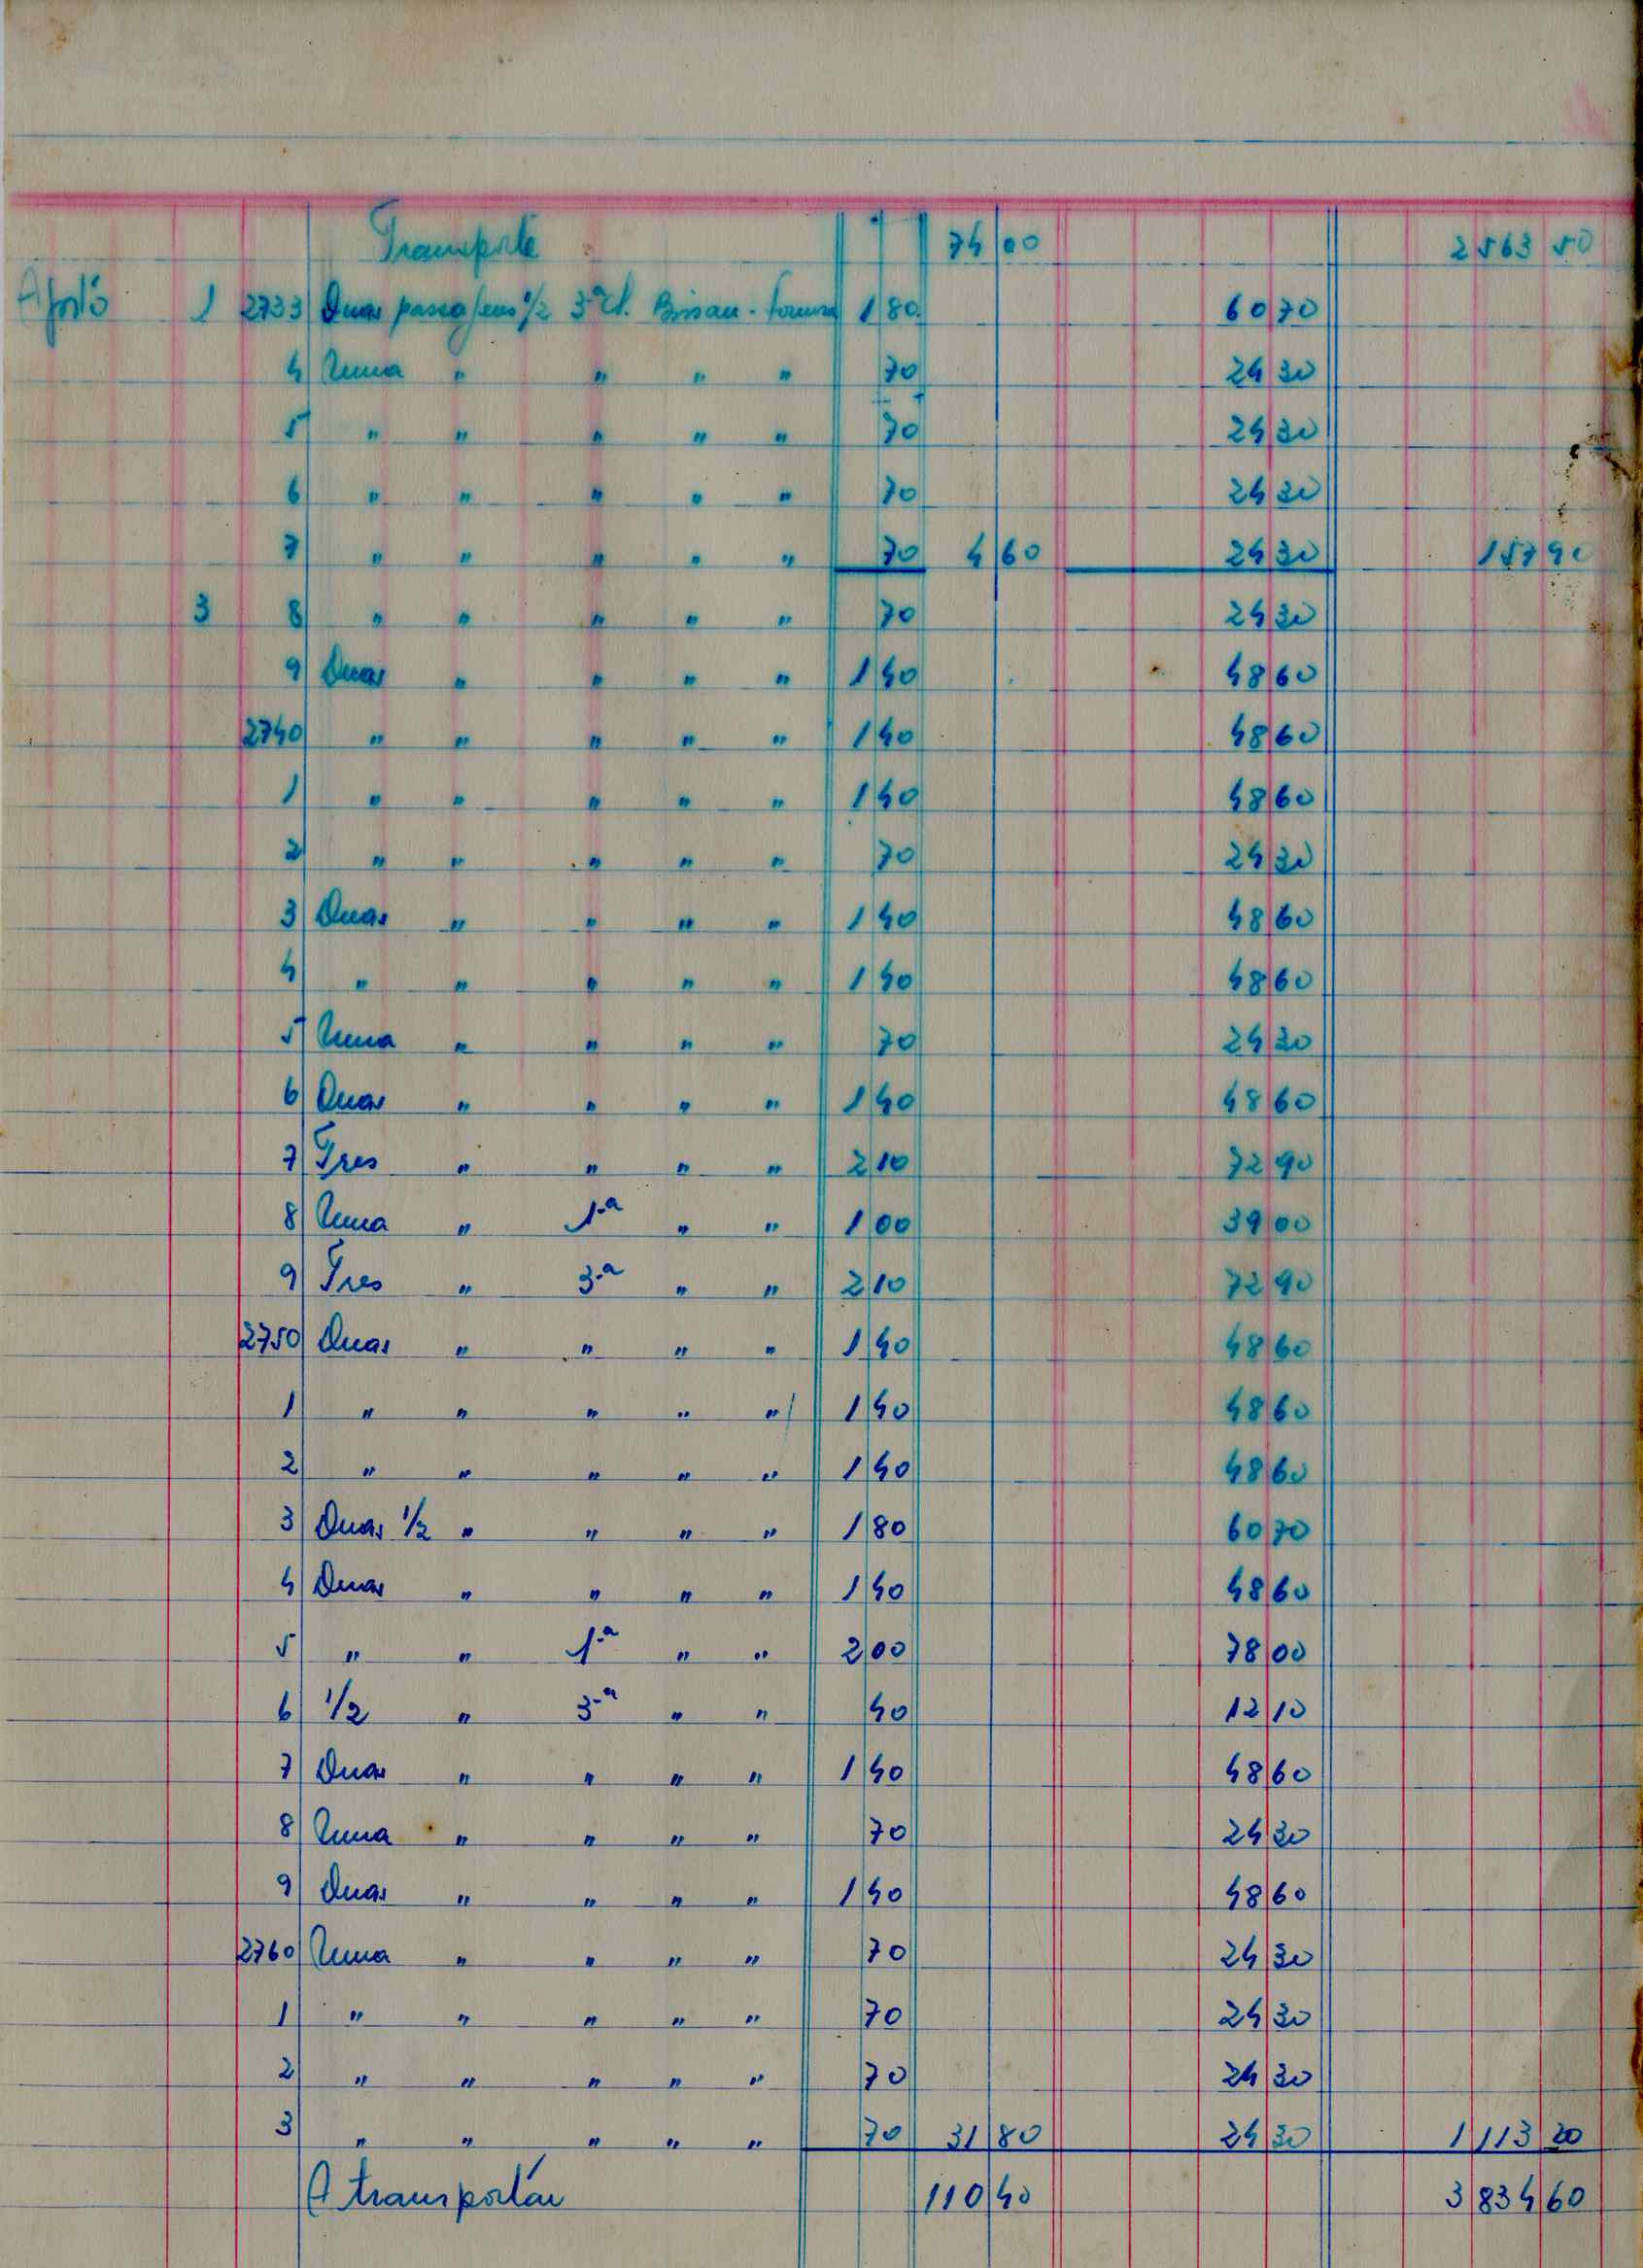 Transporte 74 00 2563 50
Agosto 1 2733 Duas passagens 1/2 3ª Cl. Bissau - 1 80 60 70
4 Uma " " " " 70 24 30
5 " " " " " 70 24 30
6 " " " " " 70 24 30
7 " " " " " 70 4 60 24 30 157 90
3 8 " " " " " 70 24 30
9 Duas " " " " 1 40 48 60
2740 " " " " " 1 40 48 60
1 " " " " " 1 40 48 60
2 " " " " " 70 24 30
3 Duas " " " " 1 40 48 60
4 " " " " " 1 40 48 60
5 Uma " " " " 70 24 30
6 Duas " " " " 1 40 48 60
7 Tres " " " " 2 10 72 90
8 Uma " 1ª " " 1 00 39 00
9 Tres " 3ª " " 2 10 72 90
2750 Duas " " " " 1 40 48 60
1 " " " " " 1 40 48 60
2 " " " " " 1 40 48 60
3 Duas 1/2 " " " " 1 80 60 70
4 Duas " " " " 1 40 48 60
5 " " 1ª " " 2 00 78 00
6 1/2 " 3ª " " 40 12 10
7 Duas " " " " 1 40 48 60
8 Uma " " " " 70 24 30
9 Duas " " " " 1 40 48 60
2760 Uma " " " " 70 24 30
1 " " " " " 70 24 30
2 " " " " " 70 24 30
3 " " " " " 70 31 80 24 30 1113 20
A transportar 110 40 3834 60